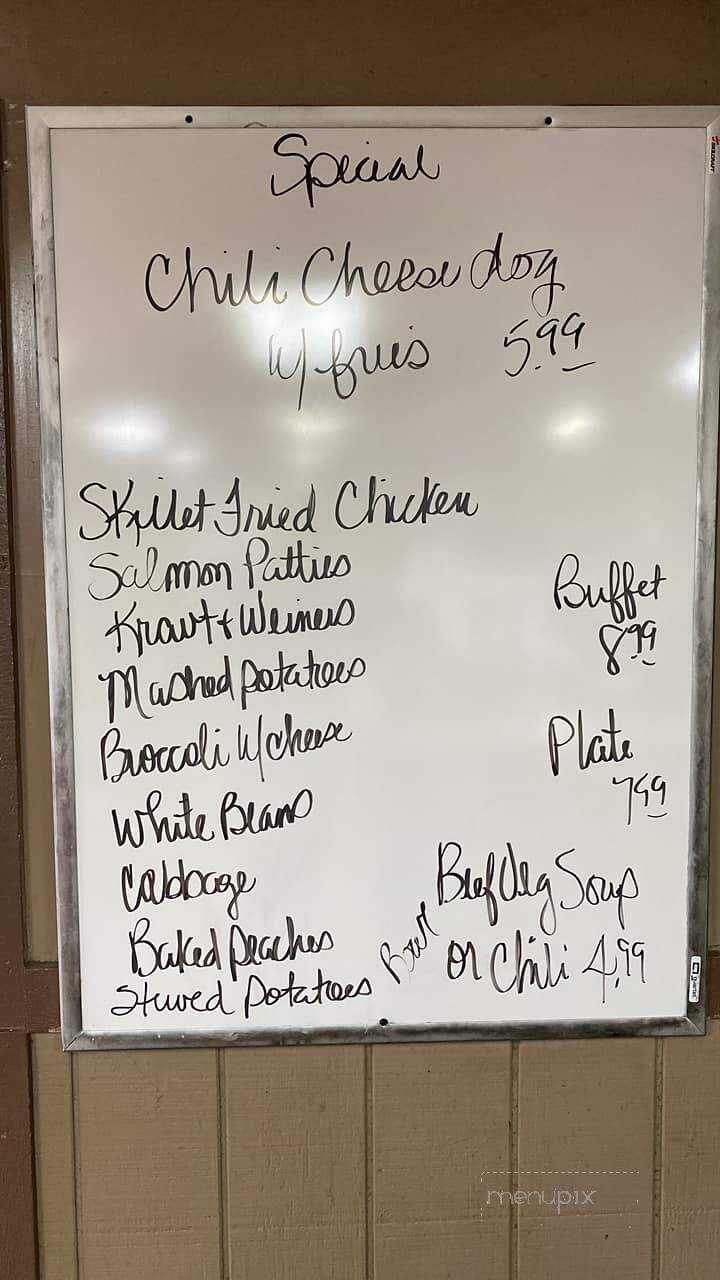 Special
Chili Cheese dog
w/ fries 5.99
Skillet Fried Chicken
Salmon Patties
Kraut & Weiners
Mashed potatoes
Broccoli w/ cheese
White Beans
Cabbage
Baked peaches
Stewed potatoes
Buffet
8.99
Plate
7.99
Beef Veg Soup
Bowl or Chili 4.99
menupix